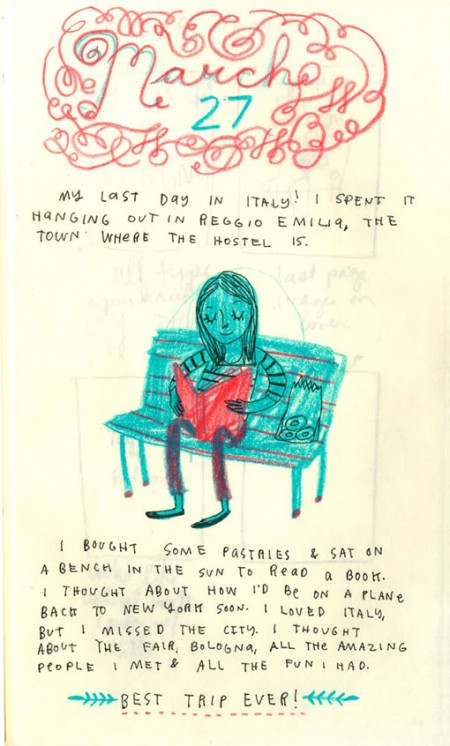 March
27
MY LAST DAY IN ITALY! I SPENT IT
HANGING OUT IN REGGIO EMILIA, THE
TOWN WHERE THE HOSTEL IS.
I BOUGHT SOME PASTRIES & SAT ON
A BENCH IN THE SUN TO READ A BOOK.
I THOUGHT ABOUT HOW I'D BE ON A PLANE
BACK TO NEW YORK SOON. I LOVED ITALY,
BUT I MISSED THE CITY. I THOUGHT
ABOUT THE FAIR, BOLOGNA, ALL THE AMAZING
PEOPLE I MET & ALL THE FUN I HAD.
BEST TRIP EVER!